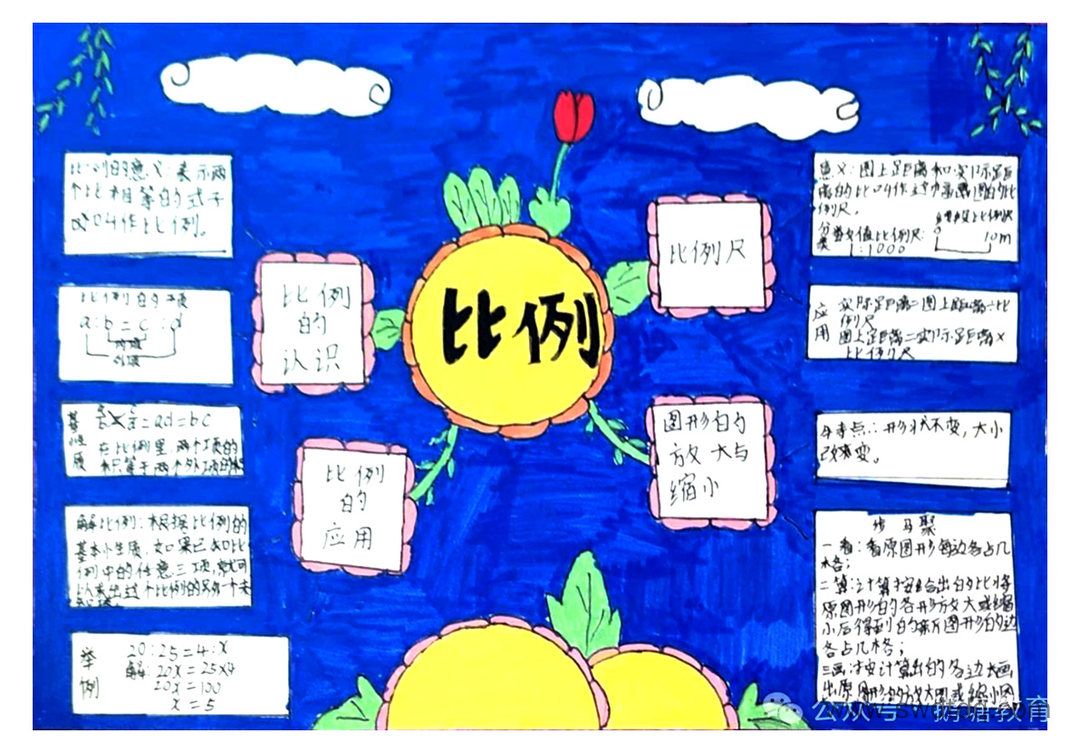 比例
比例
的
认识
比例
的
应用
比例尺
图形的
放大与
缩小
比例的意义:表示两
个比相等的式子
叫作比例。
比例的项
a:b=c:d
内项
外项
基本性质
=ad=bc
在比例里,两个项的
积等于两个外项的积
解比例:根据比例的
基本性质,如果已知比
例中的任意三项,就可
以求出这个比例的另外一个未
知项。
举例
20:25=4:x
解:20x=25×4
20x=100
x=5
意义:图上距离和实际距
离的比叫作这幅图的比
例尺。
分类
数值比例尺:
1:1000
线段比例尺
0
10m
应用
实际距离=图上距离÷比
例尺
图上距离=实际距离×
比例尺
特点:形状不变,大小
改变。
步骤
一看:看原图形每边各占几
格;
二算:计算按给出的比将
原图形的各形放大或缩
小后得到的新图形的边
各占几格;
三画:按计算出的各边长画
出原图形的放大图或缩小图
公众号 鹅塘教育